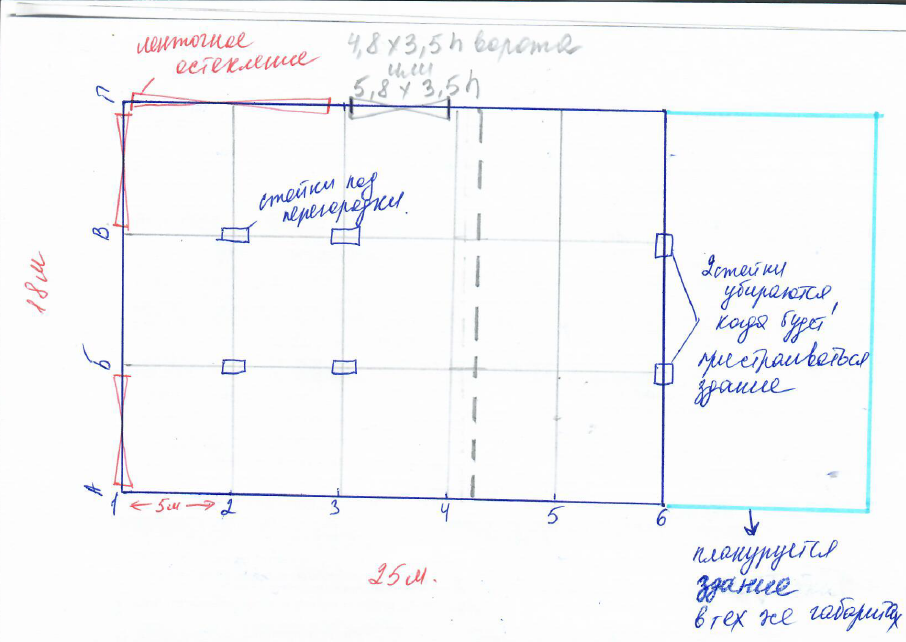 ленточное
остекление
4,8 х 3,5 h ворота
или
5,8 х 3,5 h
П
стойки под
перегородки.
В
18м
2 стойки
убираются,
когда будет
пристраиваться
здание
Б
А
1
5м
2
3
4
5
6
25м.
планируется
здание
в тех же габаритах